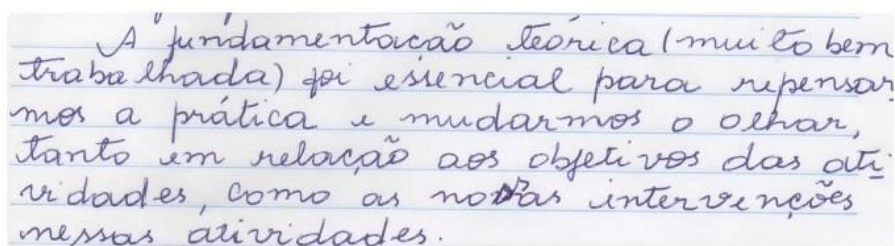 A fundamentação teórica (muito bem
trabalhada) foi essencial para repensar
mos a prática e mudarmos o olhar,
tanto em relação aos objetivos das ati
vidades, como as novas intervenções
nessas atividades.